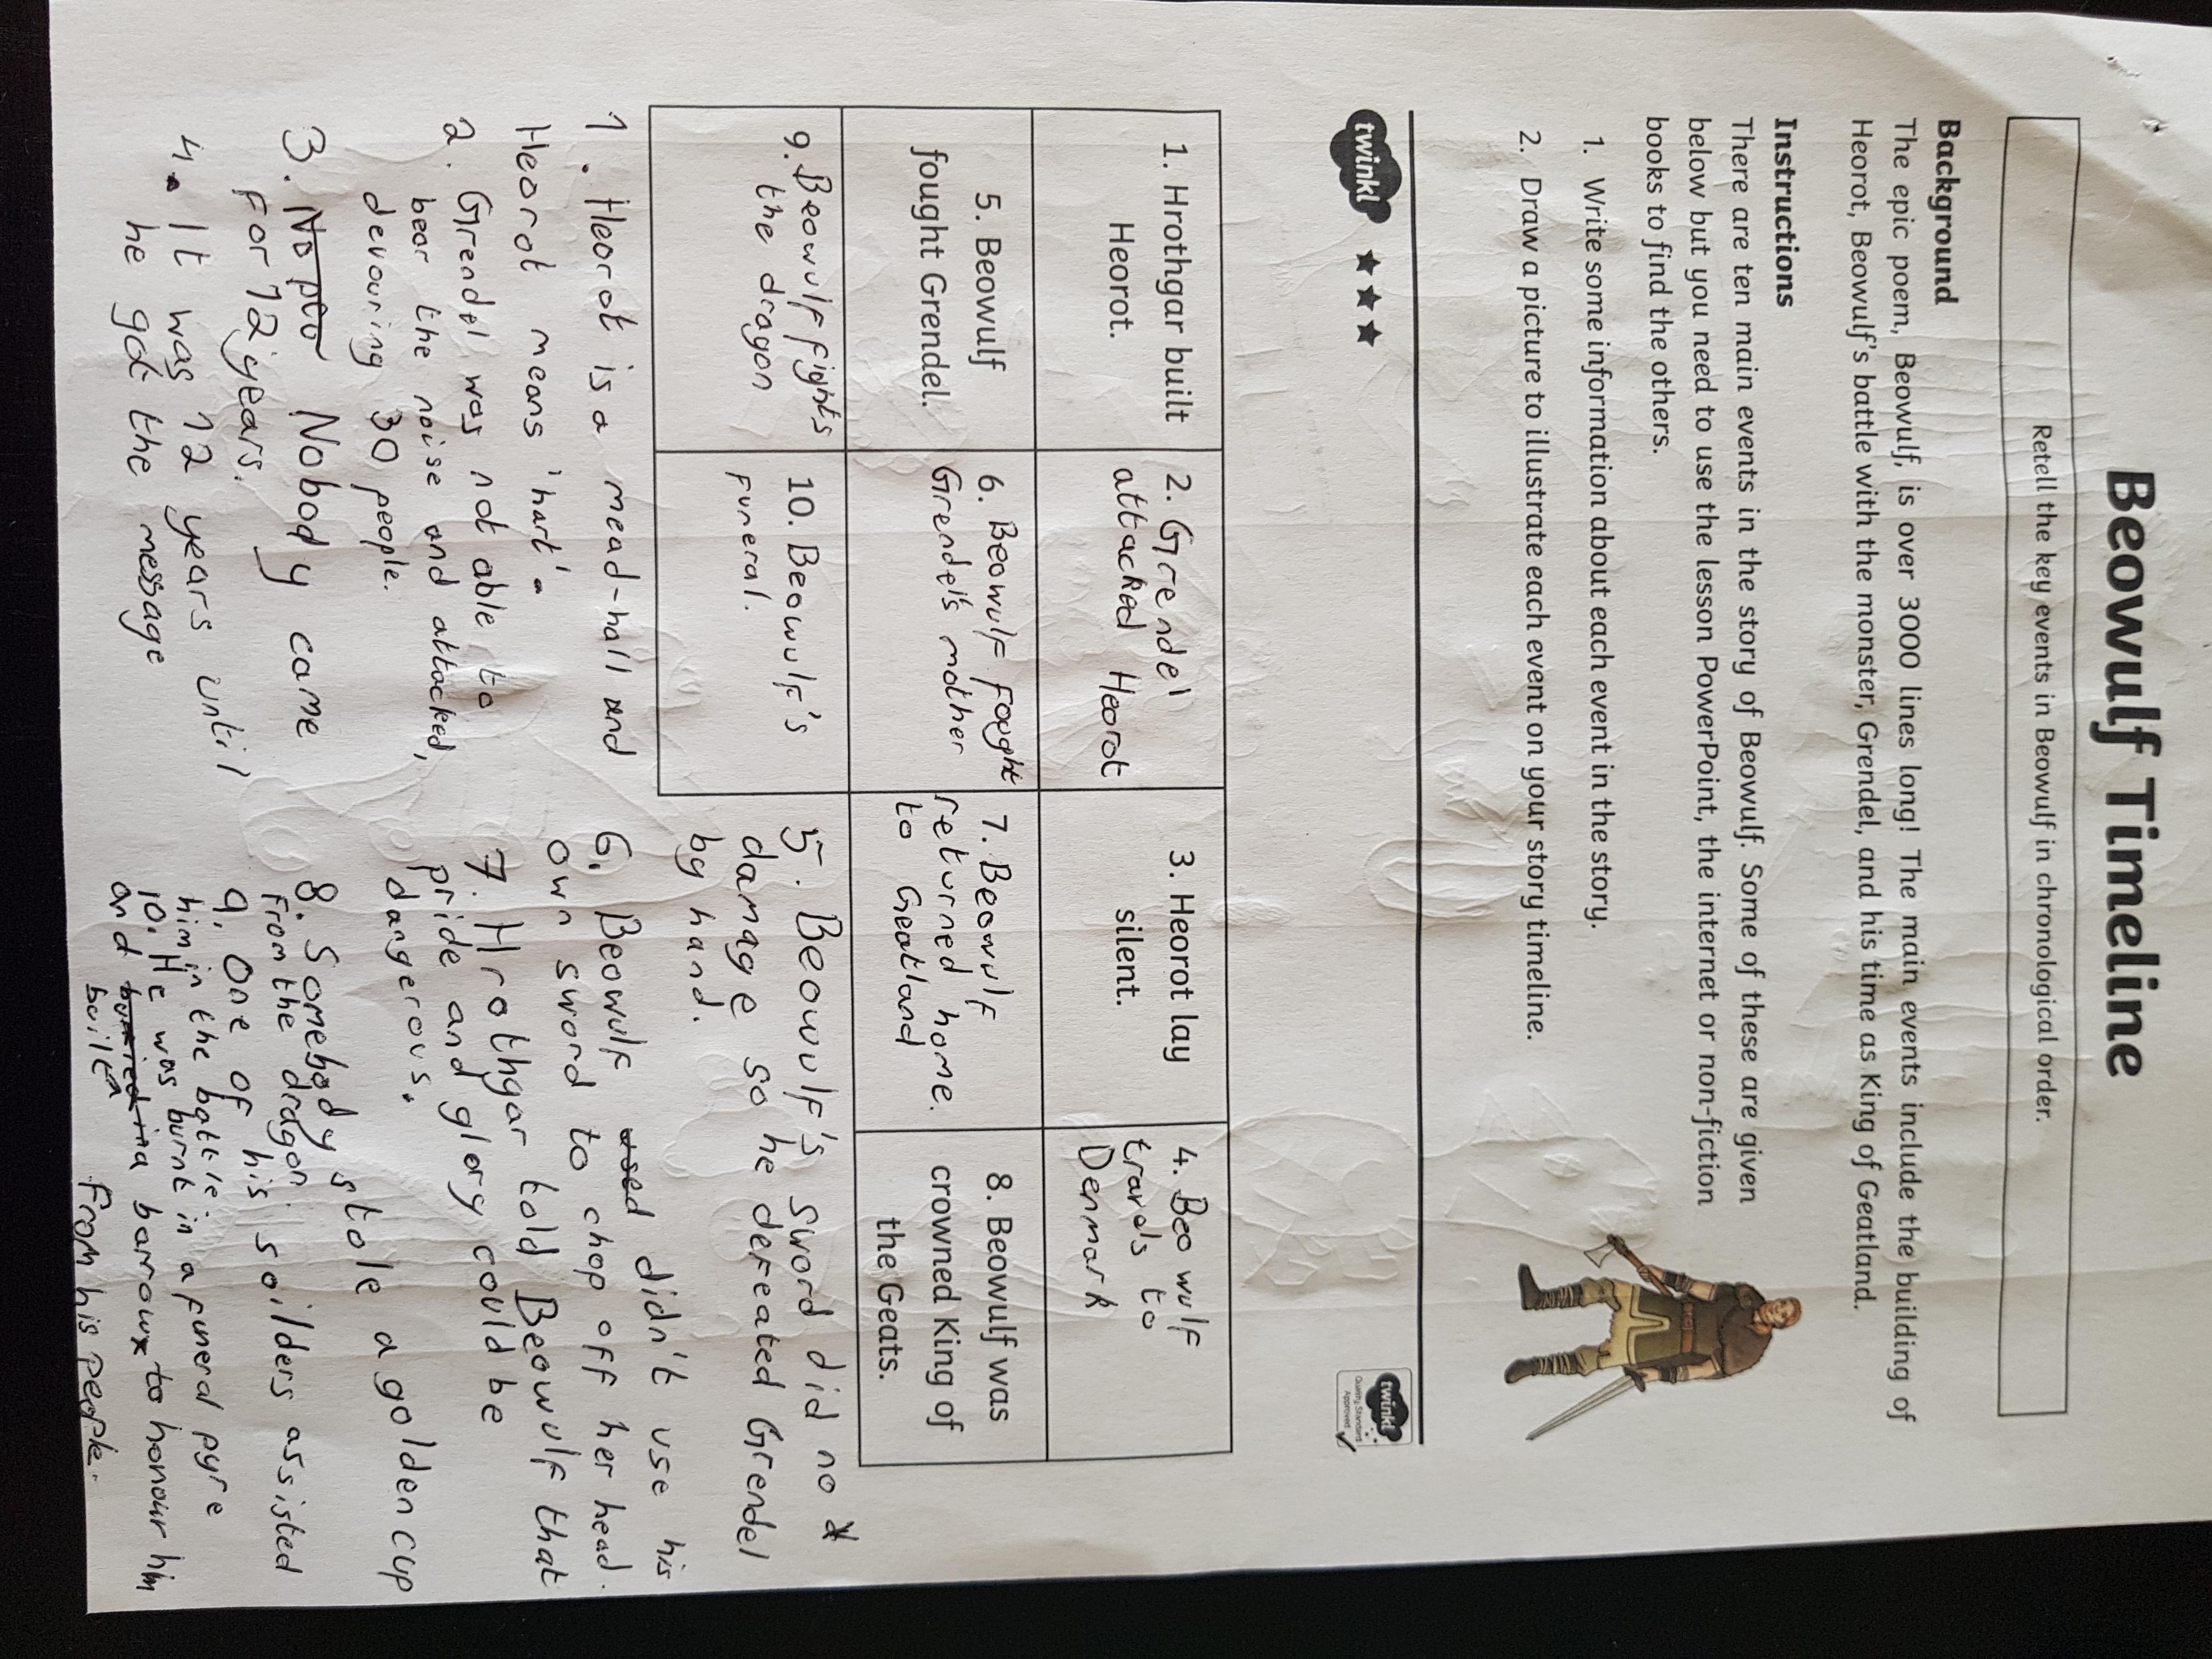 Beowulf Timeline
Retell the key events in Beowulf in chronological order.
Background
The epic poem, Beowulf, is over 3000 lines long! The main events include the building of
Heorot, Beowulf's battle with the monster, Grendel, and his time as King of Geatland.
Instructions
There are ten main events in the story of Beowulf. Some of these are given
below but you need to use the lesson PowerPoint, the internet or non-fiction
books to find the others.
1. Write some information about each event in the story.
2. Draw a picture to illustrate each event on your story timeline.
twinkl
twinkl
Quality Standard
Approved
1. Hrothgar built
Heorot.
2. Grendel
attacked Heorot
3. Heorot lay
silent.
4. Beowulf
travels to
Denmark
5. Beowulf
fought Grendel.
6. Beowulf foght
Grendel's mother
7. Beowulf
returned home.
to Geatland
8. Beowulf was
crowned King of
the Geats.
9. Beowulf fights
the dragon
10. Beowulf's
funeral.
1. Heorot is a mead-hall and
Heorot means 'hart'.
2. Grendel was not able to
bear the noise and attacked,
devouring 30 people.
3. Nobody came
For 12 years.
4. It was 12 years until
he got the message
5. Beowulf's sword did no
damage so he defeated Grendel
by hand.
6. Beowulf used didn't use his
own sword to chop off her head.
7. Hrothgar told Beowulf that
pride and glory could be
dangerous.
8. Somebody stole a golden cup
from the dragon
9. One of his soilders assisted
him in the battle
10. He was burnt in a funeral pyre
and buried in a barrow to honour him
built
From his people.